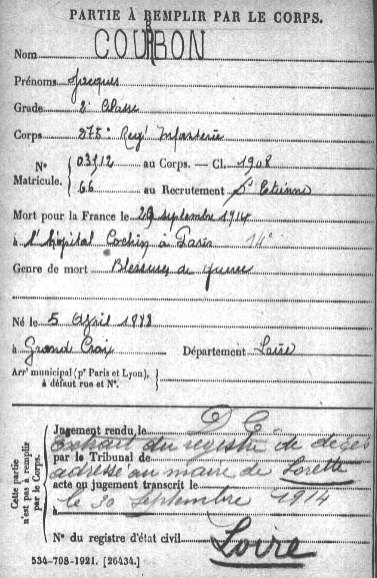 PARTIE À REMPLIR PAR LE CORPS.
Nom COURBON
Prénoms Jacques
Grade 2e Classe
Corps 275e Regt Infanterie
No Matricule. 03712 au Corps. — Cl. 1908
66 au Recrutement St Etienne
Mort pour la France le 29 septembre 1914
à l'hôpital Cochin à Paris 14e
Genre de mort Blessures de guerre
Né le 5 Avril
à Grand Croix Département Loire
Arrt municipal (pr Paris et Lyon), à défaut rue et No.
Cette partie n'est pas à remplir par le Corps.
Jugement rendu le D C.
Extrait du registre de décès
par le Tribunal de
adressé au maire de Lorette
acte ou jugement transcrit le
le 30 Septembre 1914
à
No du registre d'état civil
Loire
534-708-1921. [26434.]